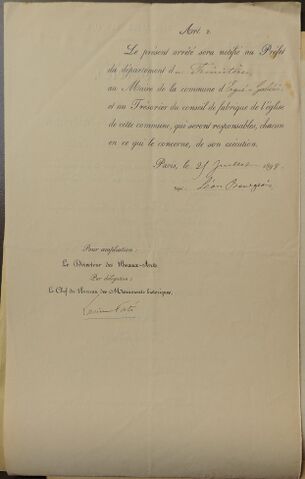 Art 2.
Le présent arrêté sera notifié au Préfet
du département du Finistère,
au Maire de la commune d'Ergué-Gabéric
et au Trésorier du conseil de fabrique de l'église
de cette commune, qui seront responsables, chacun
en ce qui le concerne, de son exécution.
Paris, le 25 Juillet 1898.
Signé: Léon Bourgeois
Pour ampliation:
Le Directeur des Beaux-Arts
Par délégation:
Le Chef du Bureau des Monuments historiques,